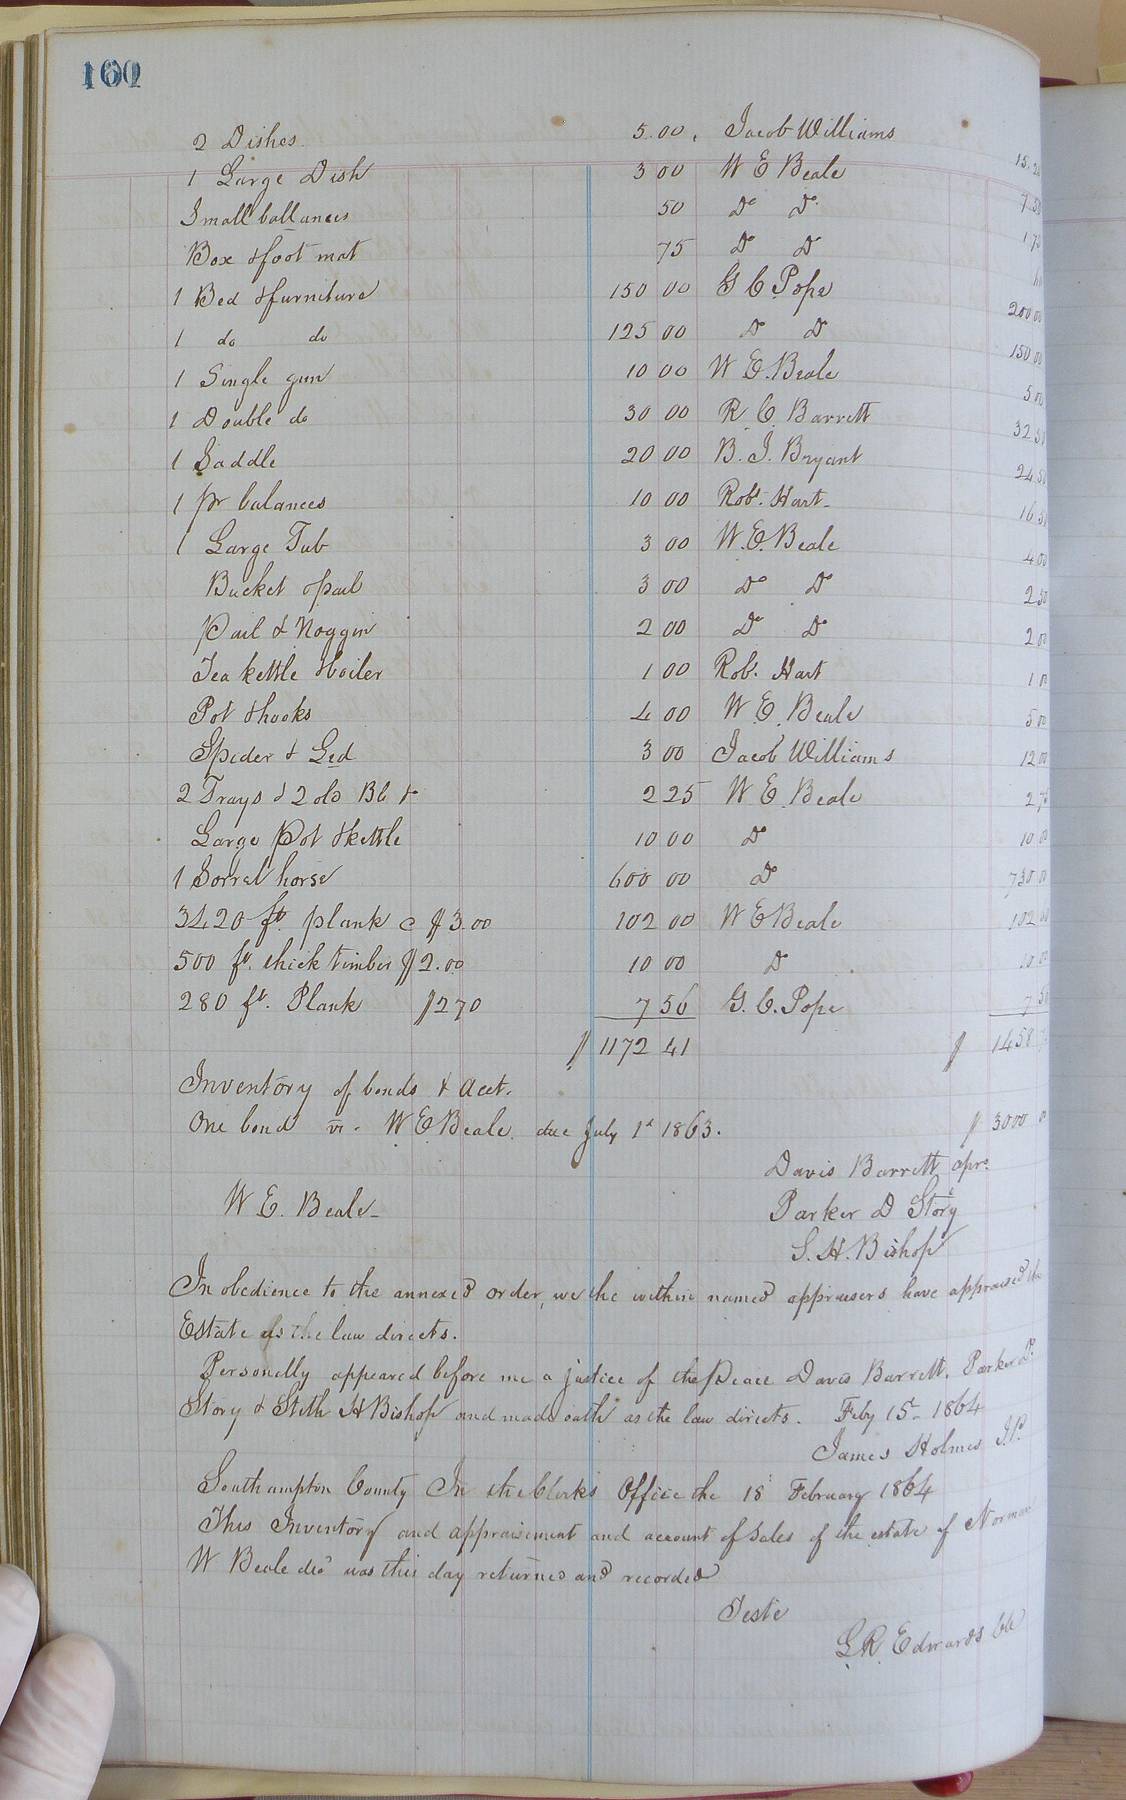 160
2 Dishes. 5.00. Jacob Williams 15.2
1 Large Dish 3 00 W E Beale 7.50
Small ballances 50 Do Do 1 75
Box & foot mat 75 Do Do
1 Bed & furniture 150 00 G C Pope 200 00
1 do do 125 00 Do Do 150 00
1 Single gun 10 00 W E. Beale 5 00
1 Double do 30 00 R. C. Barrett 32 50
1 Saddle 20 00 B. J. Bryant 24 50
1 pr balances 10 00 Robt. Hart 16 50
1 Large Tub 3 00 W. E. Beale 4 00
Bucket & pail 3 00 Do Do 2 50
Pail & Noggin 2 00 Do Do 2 00
Tea kettle & boiler 1 00 Rob. Hart 1 00
Pot & hooks 4 00 W E. Beale 5 00
Spider & Led 3 00 Jacob Williams 12 00
2 Trays & 2 old Bb & 2 25 W E. Beale 2 75
Large Pot & kettle 10 00 Do 10 00
1 Sorrel horse 600 00 Do 730 0
3420 ft. plank @ $3.00 102 00 W E Beale 102 00
500 ft. thick timber $2.00 10 00 D 10 00
280 ft. Plank $270 7 56 G. C. Pope 7 56
$1172 41 $1458
Inventory of bonds & Acct.
One bond vs. W E Beale. due July 1st 1863. $3000 0
Davis Barrett aprs
W E. Beale Parker D Story
S. H. Bishop
In obedience to the annexed order, we the within named appraisers have appraised the
Estate as the law directs.
Personally appeared before me a justice of the Peace Davis Barrett, Parker D.
Story & Stith H Bishop and made oath as the law directs. Feby 15th 1864
James Holmes J.P.
Southampton County In the Clerks Office the 18 February 1864
This Inventory and appraisement and account of Sales of the estate of Norman
W Beale decd was this day returned and recorded
Teste
L. R. Edwards Clk